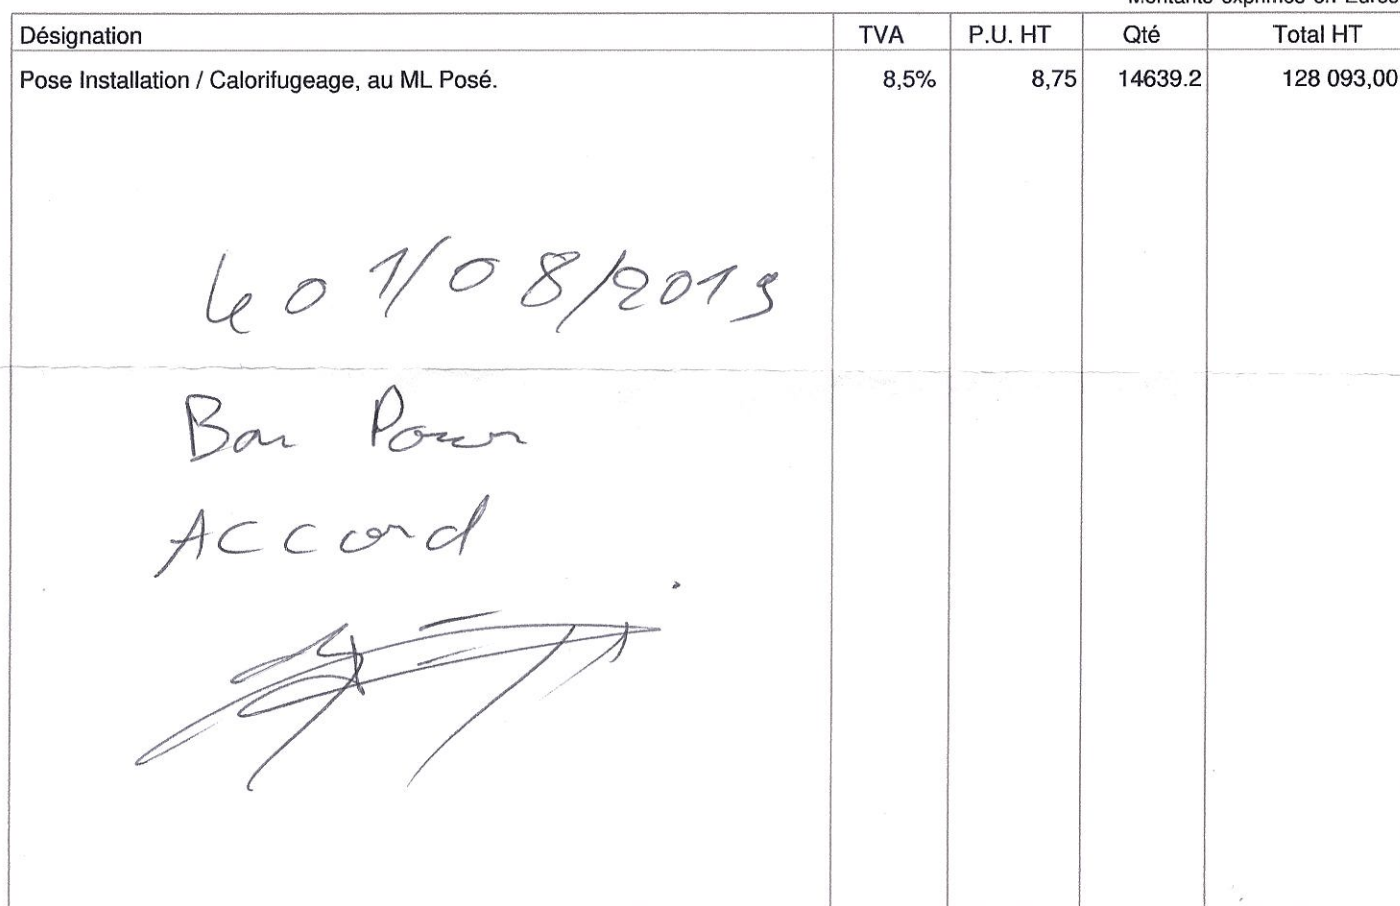 Montants exprimés en Euros
Désignation TVA P.U. HT Qté Total HT
Pose Installation / Calorifugeage, au ML Posé. 8,5% 8,75 14639.2 128 093,00
Le 01/08/2019
Bon Pour
Accord